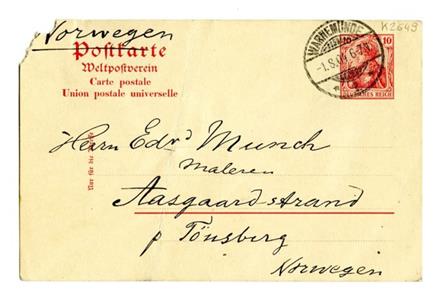 Norwegen
K2649
Postkarte
Weltpostverein
Carte postale
Union postale universelle
WARNEMÜNDE
10 10
DEUTSCHES REICH
Nur für die
Herrn Edv Munch
Maleren
Aasgaardstrand
p Tönsberg
Norwegen